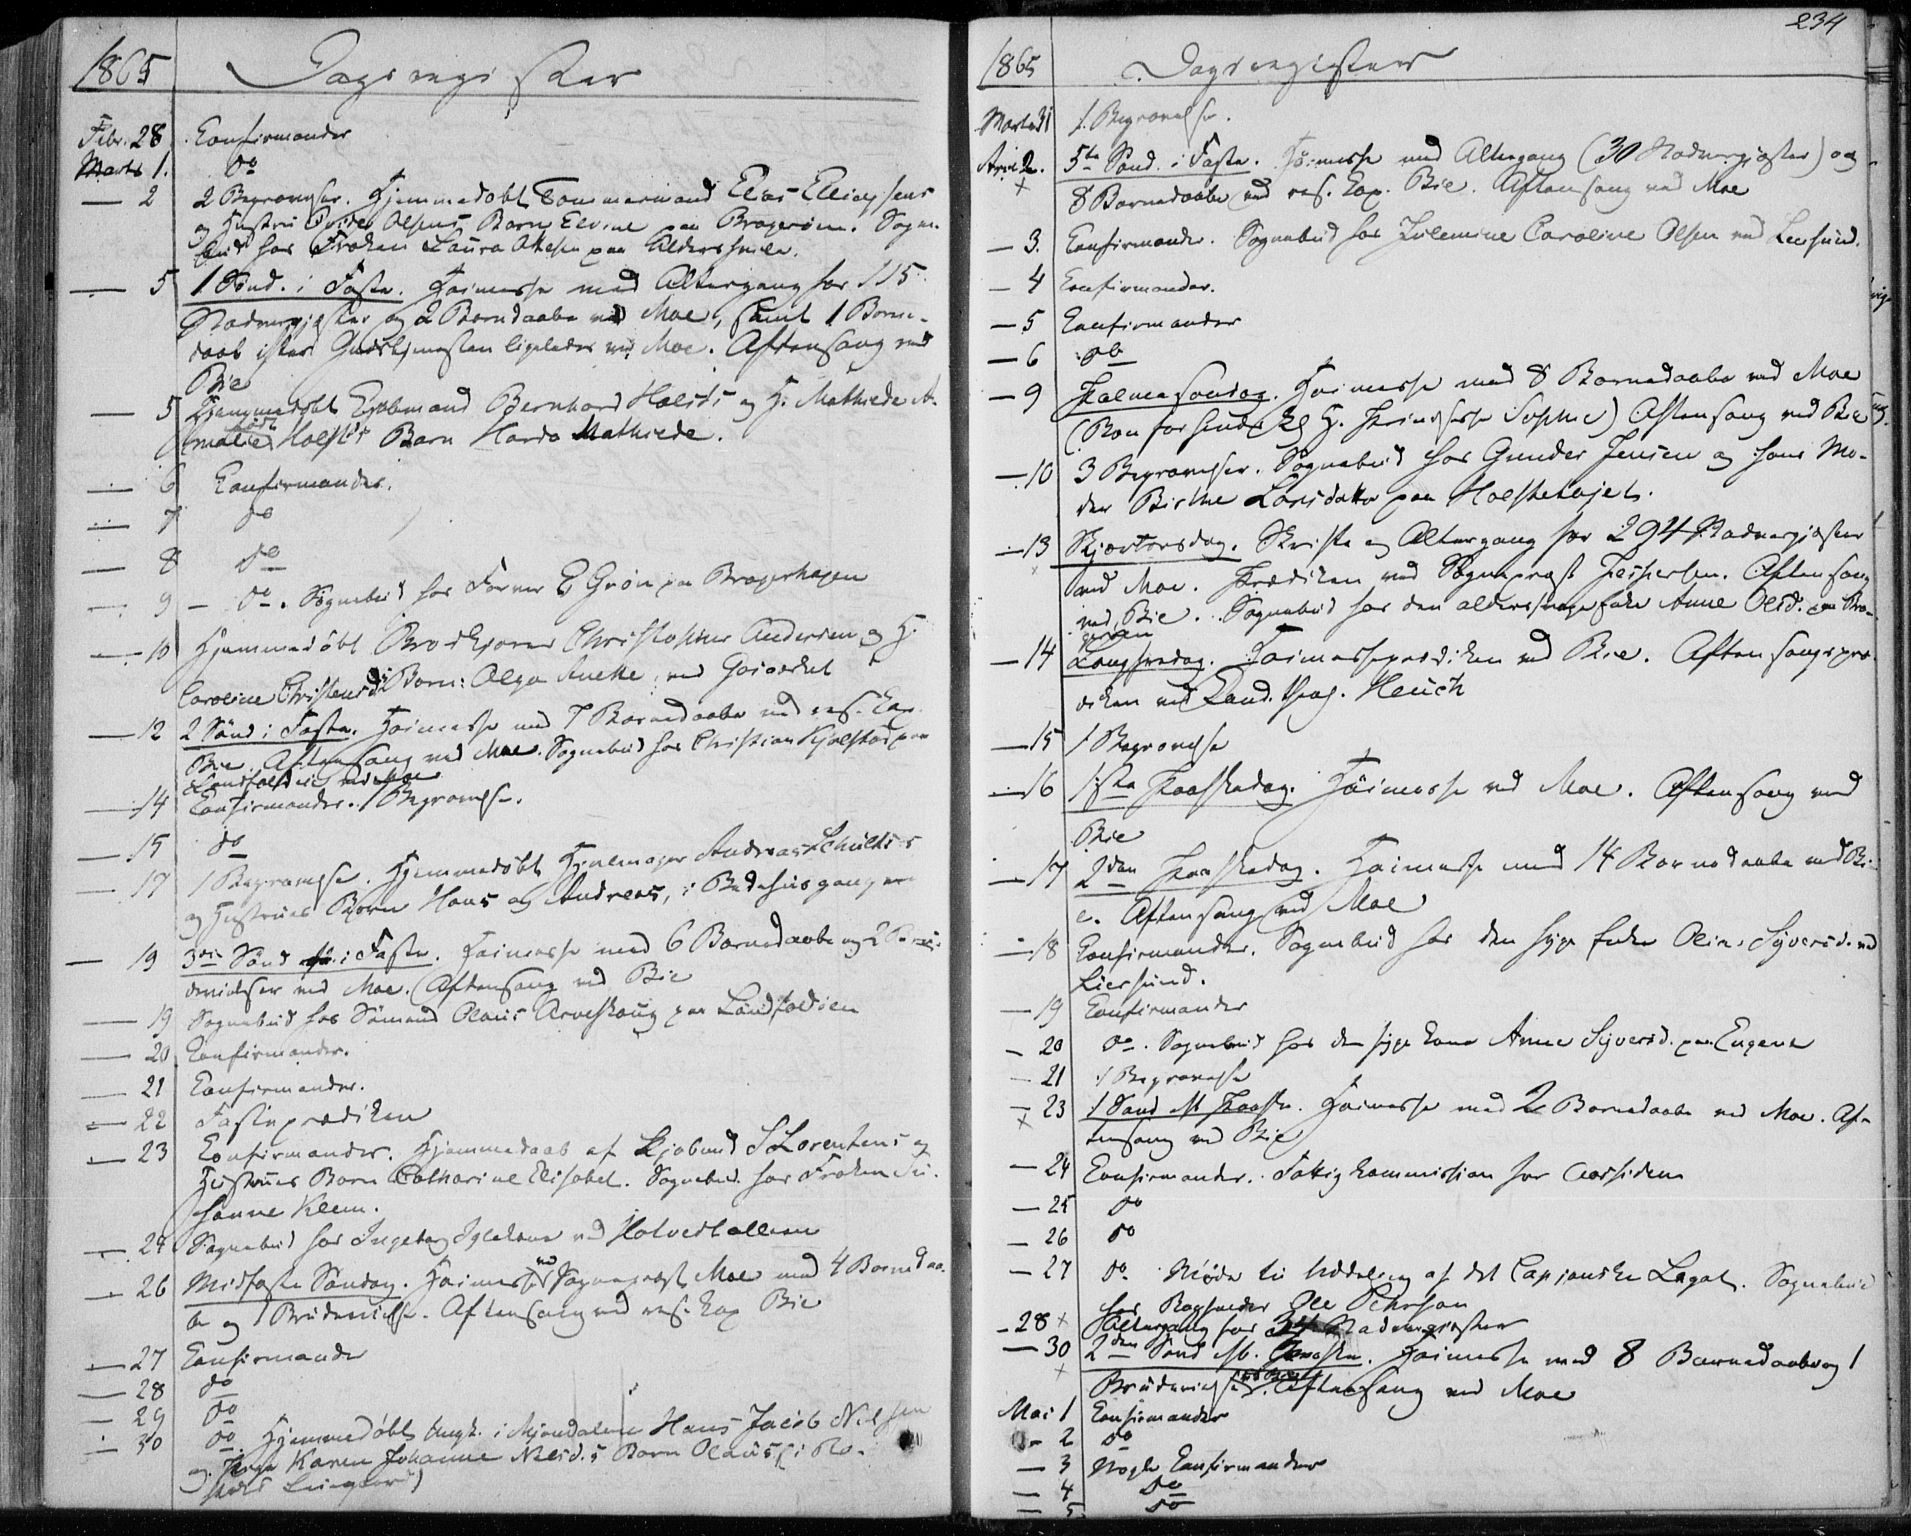 1865 Dagsregister
Febr. 28 Confirmander
Marts 1. do
— 2 2 Begravelser. Hjemmedøbt Tommermand Elias Elliassens
og Hustru Olsens Barn Elvine paa Bragerøen. Sogne-
bud hos Frøken Laura paa Aldershvile.
— 5 1 Sønd. i Faste. Høimesse med Altergang for 115
Nadvergjæster og 2 Barnedaabe ved Moe, samt 1 Barne-
daab efter Gudstjenesten ligeledes ved Moe. Aftensang ved
Bie
— 5 Hjemmedøbt Kjøbmand Bernhard Holsts og H. Mathilde A-
malie født Holst's Barn Mathilde.
— 6 Confirmander.
— 7 do
— 8 do
— 9 — do. Sognebud hos Farver E Grøn paa Bragerhagen
— 10 Hjemmedøbt Brødkjører Christopher Andersen og H.
Caroline Christensd. Barn: Olga Anette, ved Gasværket
— 12 2 Sønd i Faste. Høimesse med 7 Barnedaabe ved res. Cap.
Bie. Aftensang ved Moe. Sognebud hos Christian Kjølstad paa
Landfaldøien ved Moe
— 14 Confirmander. 1 Begravelse.
— 15 do
— 17 1 Begravelse. Hjemmedøbt Hjulmager Andreas Schultz's
og Hustrues Børn Hans og Andreas, i Bedehusgangen
— 19 3die Sønd i Faste. Høimesse med 6 Barnedaabe og 2 Bru-
devielser ved Moe. Aftensang ved Bie
— 19 Sognebud hos Sømand Olaus Arveskoug paa Landfaldøien
— 20 Confirmander.
— 21 Confirmander.
— 22 Fasteprædiken
— 23 Confirmander. Hjemmedaab af Kjøbmd S Lorentzens og
Hustrues Barn Catharine Elisabet. Sognebud hos Frøken Su-
sanne Klem.
— 24 Sognebud hos Ingeborg ved Hotvedtalleen
— 26 Midfaste Søndag. Høimesse ved Sognepræst Moe med 4 Barnedaa-
be og 1 Brudevielse. Aftensang ved res. Cap Bie
— 27 Confirmander
— 28 do
— 29 do
— 30 do Hjemmedøbt Ungk. i Mjøndalen Hans Jacob Nielsen
og Pige Karen Johanne Nilsd.s Barn Olaus (i
)
234
1865 Dagsregister
Marts 31 1 Begravelse.
April 2. 5te Sønd. i Faste. Høimesse med Altergang (30 Nadvergjæster) og
× 8 Barnedaabe ved res. Cap. Bie. Aftensang ved Moe
— 3. Confirmander. Sognebud hos Julemine Caroline Olsen ved Liersund.
— 4 Confirmander.
— 5 Confirmander
— 6 do
— 9 Palmesøndag. Høimesse med 8 Barnedaabe ved Moe
(Bøn for H. Prindsesse Sophie) Aftensang ved Bie
— 10 3 Begravelser. Sognebud hos Gunder Jensen og hans Mo-
der Birthe Larsdatter paa Holstehøjen.
— 13 Skjærtorsdag. Skrifte og Altergang for 294 Nadvergjæster
× ved Moe. Prædiken ved Sognepræst Jespersen. Aftensang
ved Bie. Sognebud hos den alderssvage Enke Anne Olsd. paa Bra-
gerøen
— 14 Langfredag. Høimesseprædiken ved Bie. Aftensangspræ-
diken ved Cand. theol. Heuch
— 15 1 Begravelse
— 16 1ste Paaskedag. Høimesse ved Moe. Aftensang ved
Bie
— 17 2den Paaskedag. Høimesse med 14 Barnedaabe ved Bi-
e. Aftensang ved Moe
— 18 Confirmander. Sognebud hos den syge Enke Olia Syversd. ved
Liersund.
— 19 Confirmander
— 20 do. Sognebud hos den syge Kone Anne Syversd. paa Engene
— 21 1 Begravelse
— 23 1 Sønd eft Paaske. Høimesse med 2 Barnedaabe ved Moe. Af-
× tensang ved Bie
— 24 Confirmander. Fattigkommission for Aarsiden
— 25 do
— 26 do
— 27 do. Møde til Uddeling af det Capjonske Legat. Sognebud
hos Ole Pehrsen
— 28 × Altergang for 34 Nadvergjæster
— 30 2den Sønd eft. Paaske. Høimesse med 8 Barnedaabe og 1
× Brudevielse ved Bie. Aftensang ved Moe
Mai 1 Confirmander
— 2 do
— 3 Nogle Confirmander
— 4 do
— 5 do